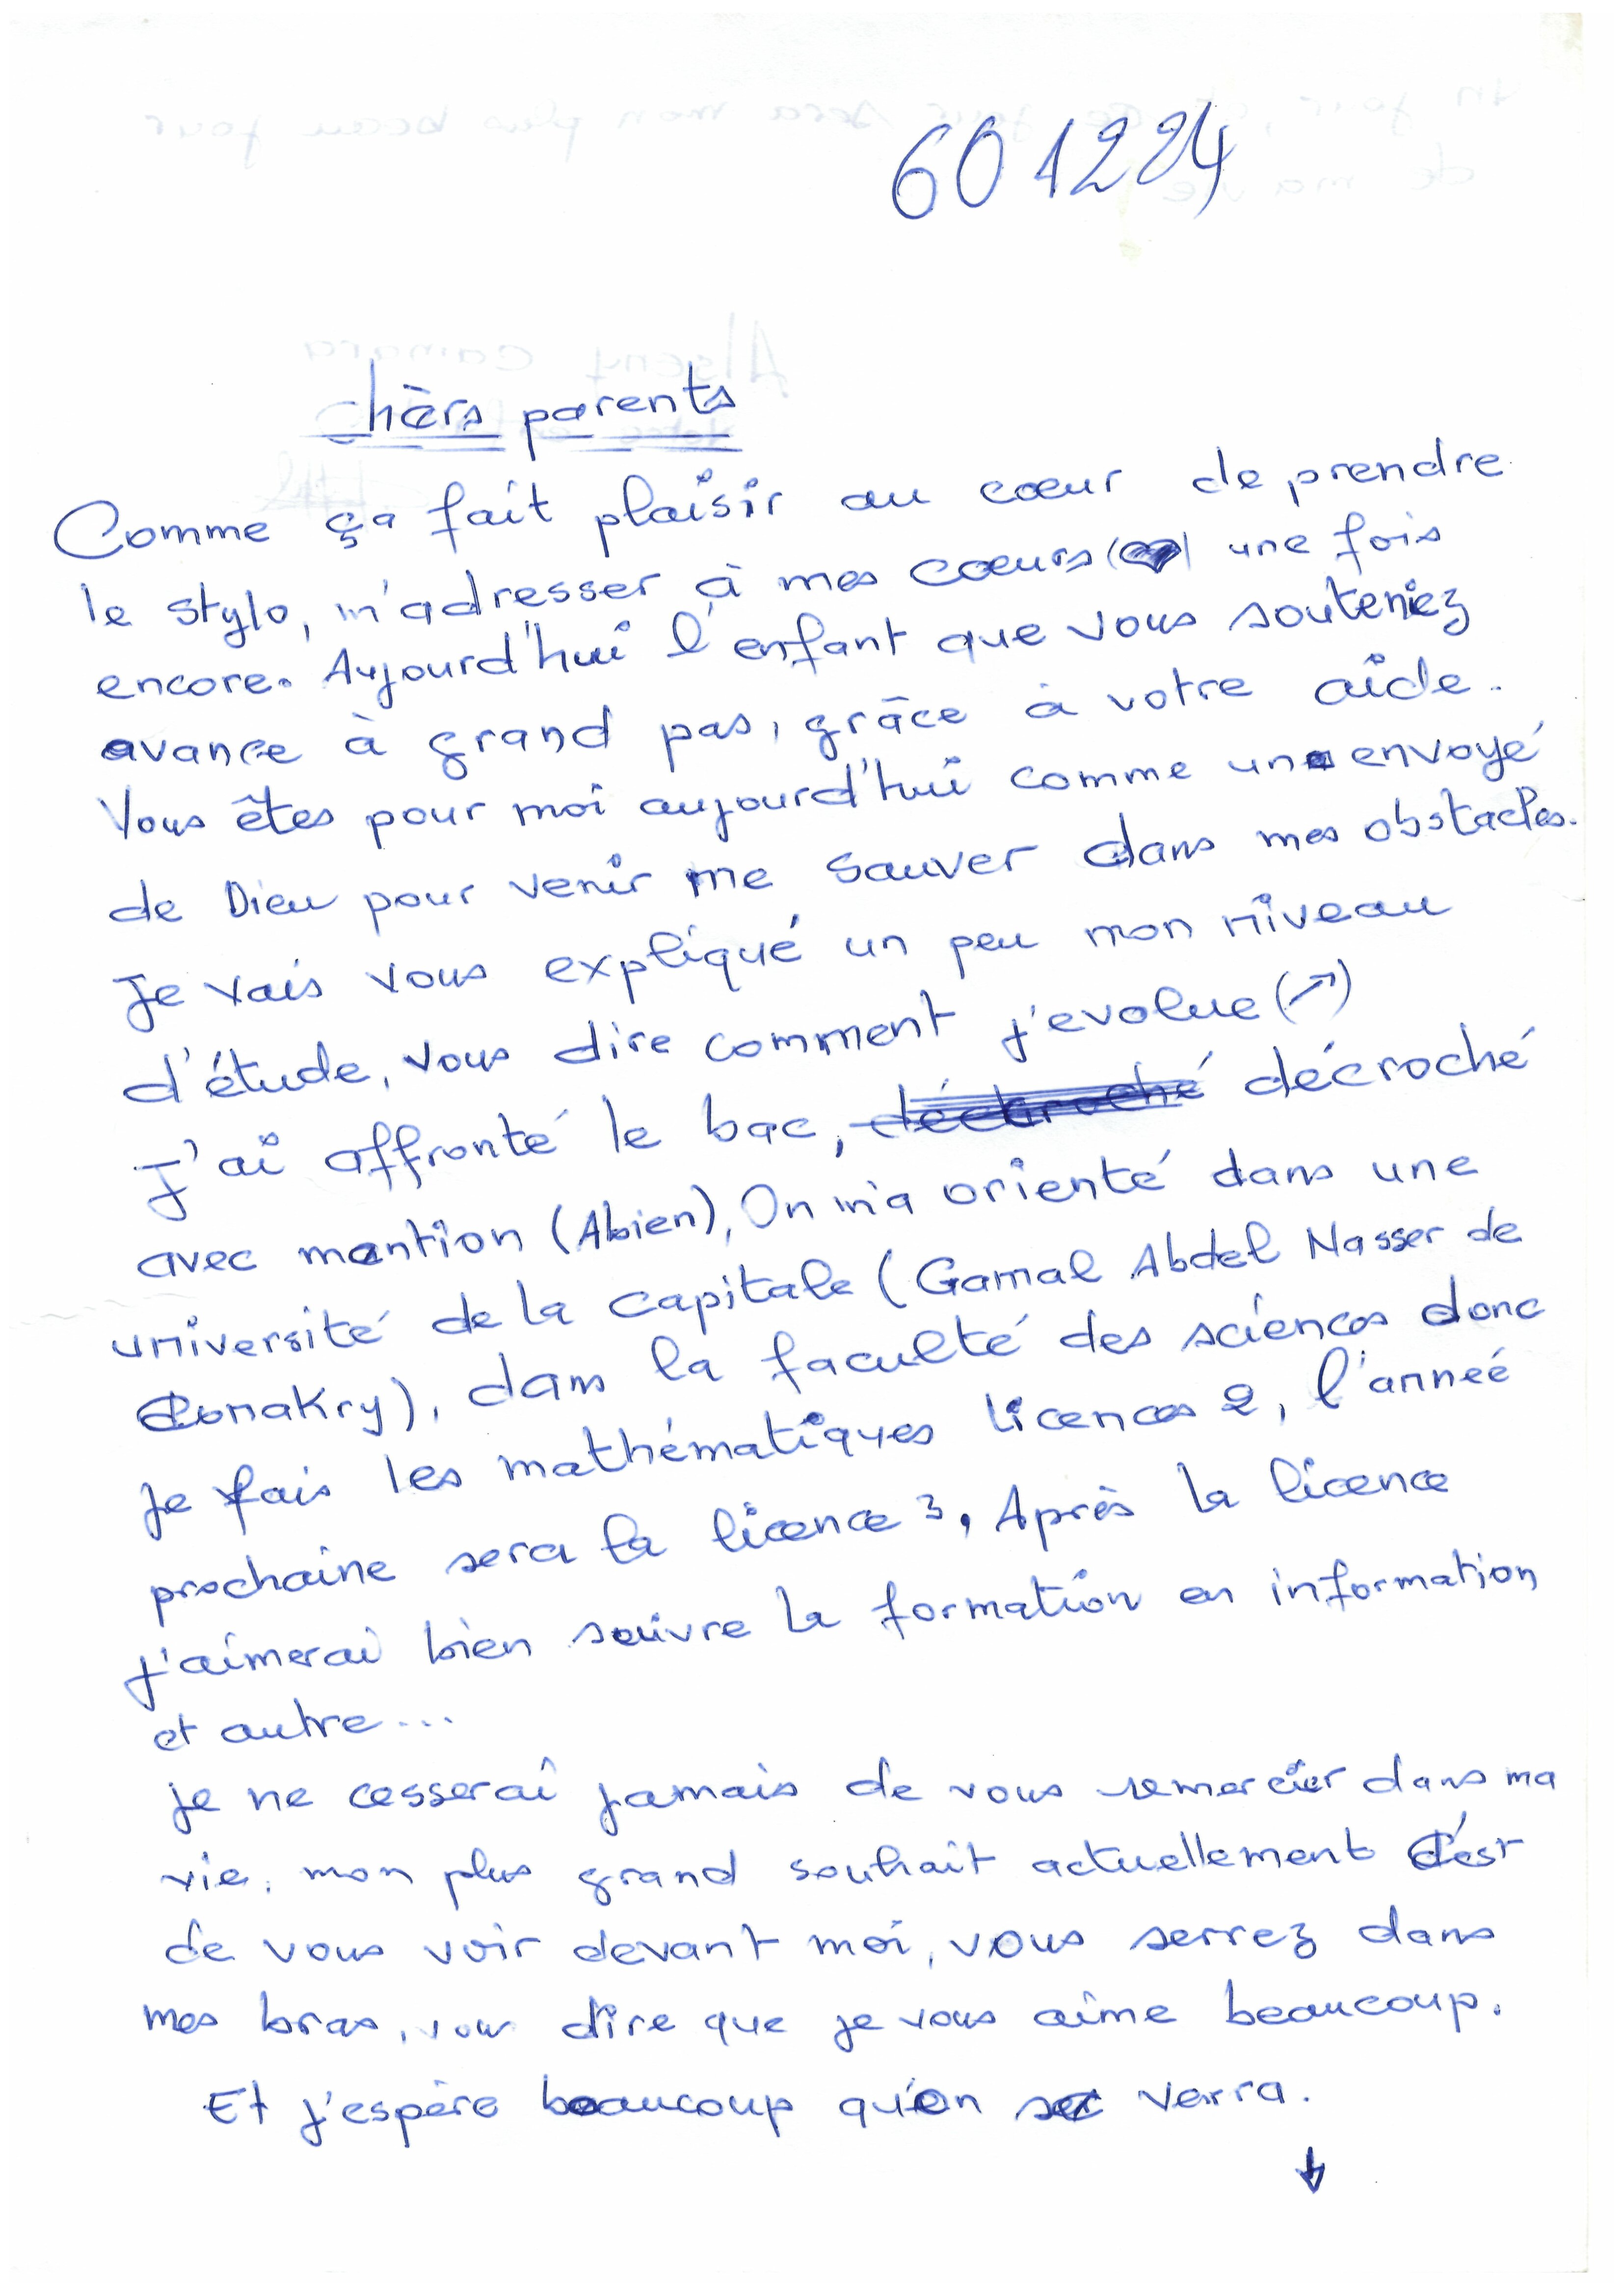 601224
chèrs parents
Comme ça fait plaisir au cœur de prendre
le stylo, m'adresser à mes cœurs (♥) une fois
encore. Aujourd'hui l'enfant que vous souteniez
avance à grand pas, grâce à votre aide.
Vous êtes pour moi aujourd'hui comme un envoyé
de Dieu pour venir me sauver dans mes obstacles.
Je vais vous expliqué un peu mon niveau
d'étude, vous dire comment j'evolue (↗)
J'ai affronté le bac, décroché
avec mention (Abien), On m'a orienté dans une
université de la capitale (Gamal Abdel Nasser de
Conakry), dans la faculté des sciences donc
je fais les mathématiques licences 2, l'anneé
prochaine sera la licence 3, Après la licence
j'aimerai bien suivre la formation en information
et autre...
je ne cesserai jamais de vous remercier dans ma
vie, mon plus grand souhait actuellement c'est
de vous voir devant moi, vous serrez dans
mes bras, vous dire que je vous aime beaucoup.
Et j'espère beaucoup qu'on se verra.
↓